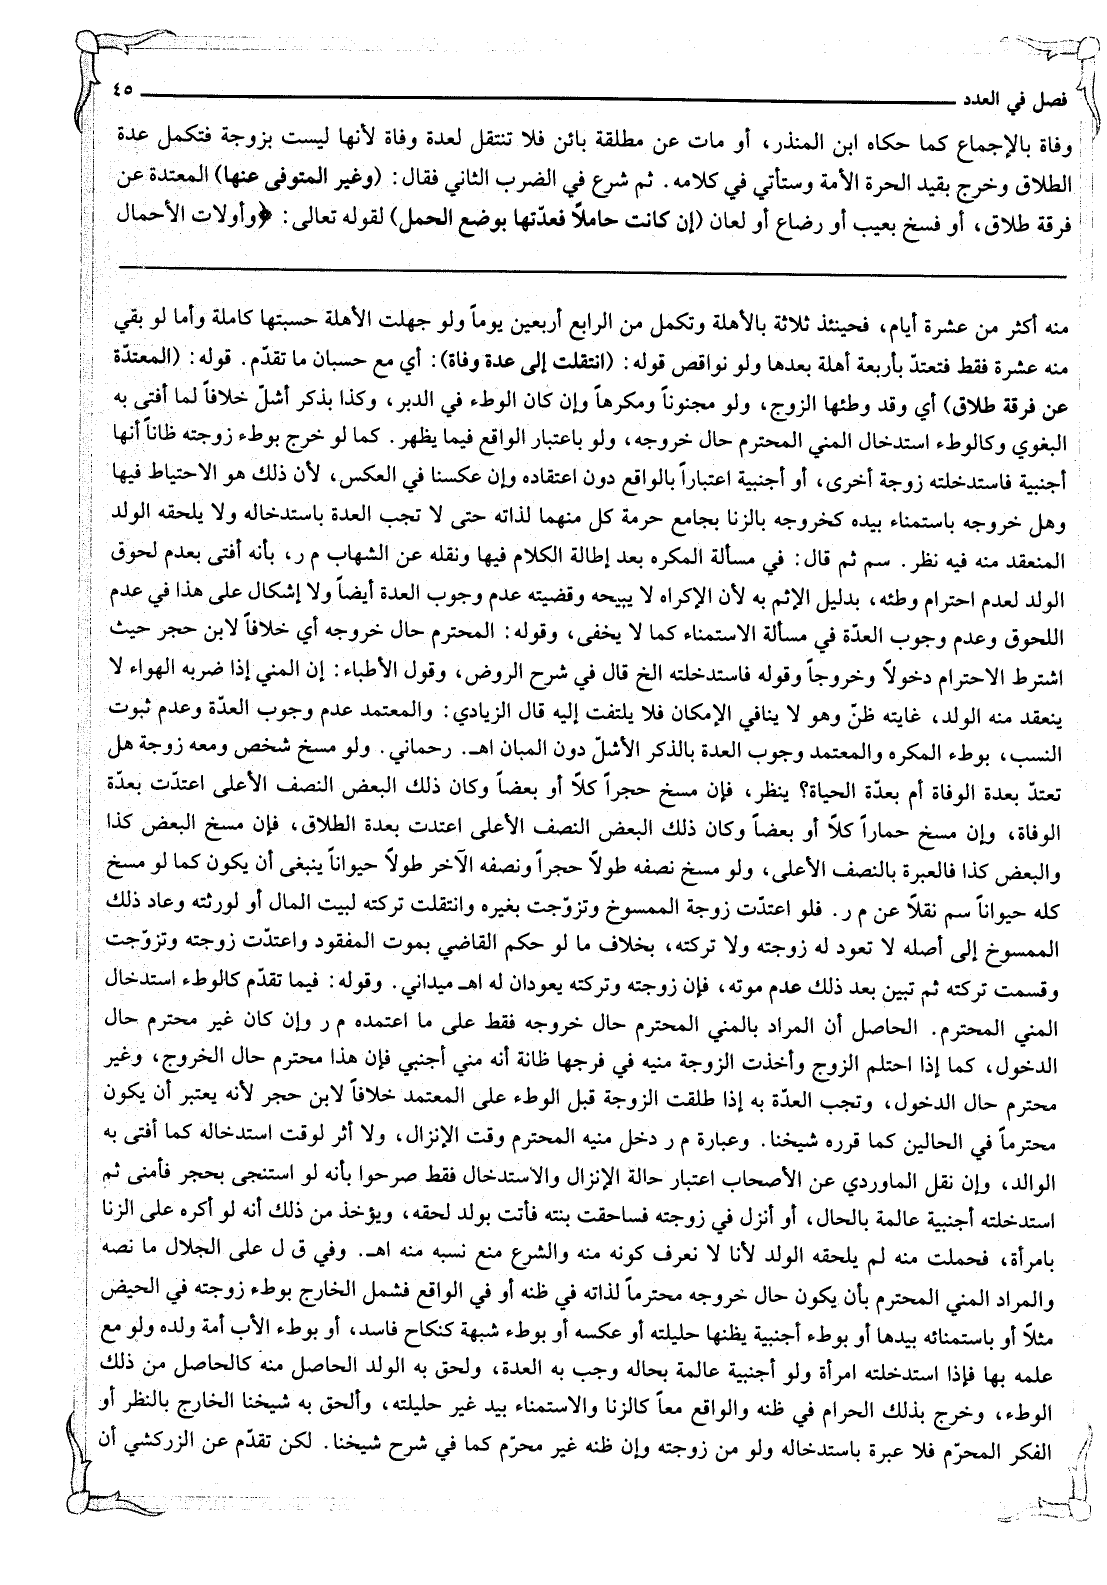 فصل في العدد ٤٥
وفاة بالإجماع كما حكاه ابن المنذر، أو مات عن مطلقة بائن فلا تنتقل لعدة وفاة لأنها ليست بزوجة فتكمل عدة
الطلاق وخرج بقيد الحرة الأمة وستأتي في كلامه. ثم شرع في الضرب الثاني فقال: (وغير المتوفى عنها) المعتدة عن
فرقة طلاق، أو فسخ بعيب أو رضاع أو لعان (إن كانت حاملاً فعدّتها بوضع الحمل) لقوله تعالى: ﴿وأولات الأحمال
منه أكثر من عشرة أيام، فحينئذ ثلاثة بالأهلة وتكمل من الرابع أربعين يوماً ولو جهلت الأهلة حسبتها كاملة وأما لو بقي
منه عشرة فقط فتعتدّ بأربعة أهلة بعدها ولو نواقص قوله: (انتقلت إلى عدة وفاة): أي مع حسبان ما تقدّم. قوله: (المعتدّة
عن فرقة طلاق) أي وقد وطئها الزوج، ولو مجنوناً ومكرهاً وإن كان الوطء في الدبر، وكذا بذكر أشلّ خلافاً لما أفتى به
البغوي وكالوطء استدخال المني المحترم حال خروجه، ولو باعتبار الواقع فيما يظهر. كما لو خرج بوطء زوجته ظاناً أنها
أجنبية فاستدخلته زوجة أخرى، أو أجنبية اعتباراً بالواقع دون اعتقاده وإن عكسنا في العكس، لأن ذلك هو الاحتياط فيها
وهل خروجه باستمناء بيده كخروجه بالزنا بجامع حرمة كل منهما لذاته حتى لا تجب العدة باستدخاله ولا يلحقه الولد
المنعقد منه فيه نظر. سم ثم قال: في مسألة المكره بعد إطالة الكلام فيها ونقله عن الشهاب م ر، بأنه أفتى بعدم لحوق
الولد لعدم احترام وطئه، بدليل الإثم به لأن الإكراه لا يبيحه وقضيته عدم وجوب العدة أيضاً ولا إشكال على هذا في عدم
اللحوق وعدم وجوب العدّة في مسألة الاستمناء كما لا يخفى، وقوله: المحترم حال خروجه أي خلافاً لابن حجر حيث
اشترط الاحترام دخولاً وخروجاً وقوله فاستدخلته الخ قال في شرح الروض، وقول الأطباء: إن المني إذا ضربه الهواء لا
ينعقد منه الولد، غايته ظنّ وهو لا ينافي الإمكان فلا يلتفت إليه قال الزيادي: والمعتمد عدم وجوب العدّة وعدم ثبوت
النسب، بوطء المكره والمعتمد وجوب العدة بالذكر الأشلّ دون المبان اهـ. رحماني. ولو مسخ شخص ومعه زوجة هل
تعتدّ بعدة الوفاة أم بعدّة الحياة؟ ينظر، فإن مسخ حجراً كلًا أو بعضاً وكان ذلك البعض النصف الأعلى اعتدّت بعدّة
الوفاة، وإن مسخ حماراً كلاً أو بعضاً وكان ذلك البعض النصف الأعلى اعتدت بعدة الطلاق، فإن مسخ البعض كذا
والبعض كذا فالعبرة بالنصف الأعلى، ولو مسخ نصفه طولاً حجراً ونصفه الآخر طولاً حيواناً ينبغي أن يكون كما لو مسخ
كله حيواناً سم نقلاً عن م ر. فلو اعتدّت زوجة الممسوخ وتزوّجت بغيره وانتقلت تركته لبيت المال أو لورثته وعاد ذلك
الممسوخ إلى أصله لا تعود له زوجته ولا تركته، بخلاف ما لو حكم القاضي بموت المفقود واعتدّت زوجته وتزوّجت
وقسمت تركته ثم تبين بعد ذلك عدم موته، فإن زوجته وتركته يعودان له اهـ ميداني. وقوله: فيما تقدّم كالوطء استدخال
المني المحترم. الحاصل أن المراد بالمني المحترم حال خروجه فقط على ما اعتمده م ر وإن كان غير محترم حال
الدخول، كما إذا احتلم الزوج وأخذت الزوجة منيه في فرجها ظانة أنه مني أجنبي فإن هذا محترم حال الخروج، وغير
محترم حال الدخول، وتجب العدّة به إذا طلقت الزوجة قبل الوطء على المعتمد خلافاً لابن حجر لأنه يعتبر أن يكون
محترماً في الحالين كما قرره شيخنا. وعبارة م ر دخل منيه المحترم وقت الإنزال، ولا أثر لوقت استدخاله كما أفتى به
الوالد، وإن نقل الماوردي عن الأصحاب اعتبار حالة الإنزال والاستدخال فقط صرحوا بأنه لو استنجى بحجر فأمنى ثم
استدخلته أجنبية عالمة بالحال، أو أنزل في زوجته فساحقت بنته فأتت بولد لحقه، ويؤخذ من ذلك أنه لو أكره على الزنا
بامرأة، فحملت منه لم يلحقه الولد لأنا لا نعرف كونه منه والشرع منع نسبه منه اهـ. وفي ق ل على الجلال ما نصه
والمراد المني المحترم بأن يكون حال خروجه محترماً لذاته في ظنه أو في الواقع فشمل الخارج بوطء زوجته في الحيض
مثلاً أو باستمنائه بيدها أو بوطء أجنبية يظنها حليلته أو عكسه أو بوطء شبهة كنكاح فاسد، أو بوطء الأب أمة ولده ولو مع
علمه بها فإذا استدخلته امرأة ولو أجنبية عالمة بحاله وجب به العدة، ولحق به الولد الحاصل منه كالحاصل من ذلك
الوطء، وخرج بذلك الحرام في ظنه والواقع معاً كالزنا والاستمناء بيد غير حليلته، وألحق به شيخنا الخارج بالنظر أو
الفكر المحرّم فلا عبرة باستدخاله ولو من زوجته وإن ظنه غير محرّم كما في شرح شيخنا. لكن تقدّم عن الزركشي أن